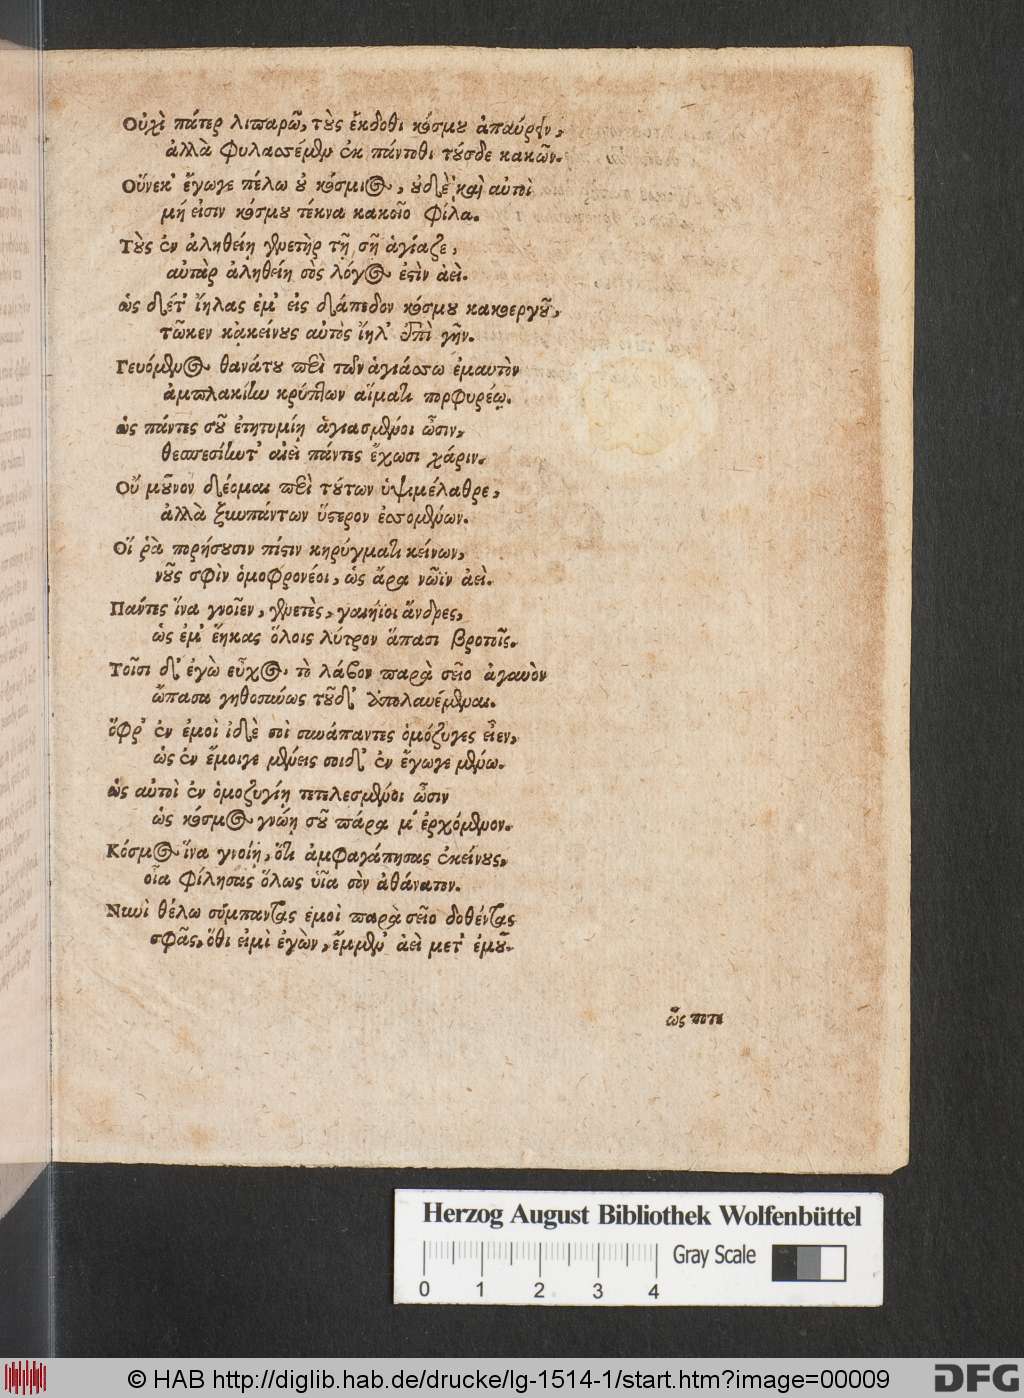 Οὐχὶ πάτερ λιπαρῶ, τοὺς ἔκδοθι κόσμου ἀπαύρειν,
ἀλλὰ φυλασσέμεν ἐκ πάντοθι τούσδε κακῶν.
Οὕνεκ' ἔγωγε πέλω οὐ κόσμιος, οὐδὲ καὶ αὐτοὶ
μή εἰσιν κόσμου τέκνα κακοῖο φίλα.
Τοὺς ἐν ἀληθείῃ γενετὴρ τῇ σῇ ἁγίαζε,
αὐτὰρ ἀληθείη σὸς λόγος ἐστὶν ἀεὶ.
ὡς δέ τ' ἴηλας ἐμ' εἰς δάπεδον κόσμου κακοεργοῦ,
τῶκεν κᾀκείνους αὐτὸς ἴηλ' ἐπὶ γῆν.
Γευόμενος θανάτου περὶ τῶν ἁγιάσσω ἐμαυτὸν
ἀμπλακίην κρύπτων αἵματι πορφυρέῳ.
ὡς πάντες σοῦ ἐτητυμίῃ ἁγιασμένοι ὦσιν,
θεσπεσίην τ' αἰεὶ πάντες ἔχωσι χάριν.
Οὔ μοῦνον δέομαι περὶ τούτων ὑψιμέλαθρε,
ἀλλὰ ξυνπάντων ὕστερον ἐσσομένων.
Οἵ ῥὰ πορήσουσιν πίστιν κηρύγματι κείνων,
νοῦς σφὶν ὁμοφρονέοι, ὡς ἄρα νῶϊν ἀεὶ.
Πάντες ἵνα γνοῖεν, γενετὲς, γαιήϊοι ἄνδρες,
ὡς ἐμ' ἔηκας ὅλοις λύτρον ἅπασι βροτοῖς.
Τοῖσι δ' ἐγὼ εὖχος τὸ λάβον παρὰ σεῖο ἀγαυὸν
ὤπασα γηθοσύνως τοῦδ' ἀπολαυέμεναι.
ὄφρ' ἐν ἐμοὶ ἰδὲ σοὶ συνάπαντες ὁμόζυγες εἶεν,
ὡς ἐν ἔμοιγε μένεις σοιδ' ἐν ἔγωγε μένω.
ὡς αὐτοὶ ἐν ὁμοζυγίῃ τετελεσμένοι ὦσιν
ὡς κόσμος γνώῃ σοῦ πάρα μ' ἐρχόμενον.
Κόσμος ἵνα γνοίη, ὅτι ἀμφαγάπησας ἐκείνους,
οἷα φίλησας ὅλως υἷα σὸν ἀθάνατον.
Νωὶ θέλω σύμπαντας ἐμοὶ παρὰ σεῖο δοθέντας
σφᾶς, ὅθι εἰμὶ ἐγὼν, ἔμμεν' ἀεὶ μετ' ἐμοῦ.
ὥς ποτε
Herzog August Bibliothek Wolfenbüttel
Gray Scale
0 1 2 3 4
© HAB http://diglib.hab.de/drucke/lg-1514-1/start.htm?image=00009
DFG